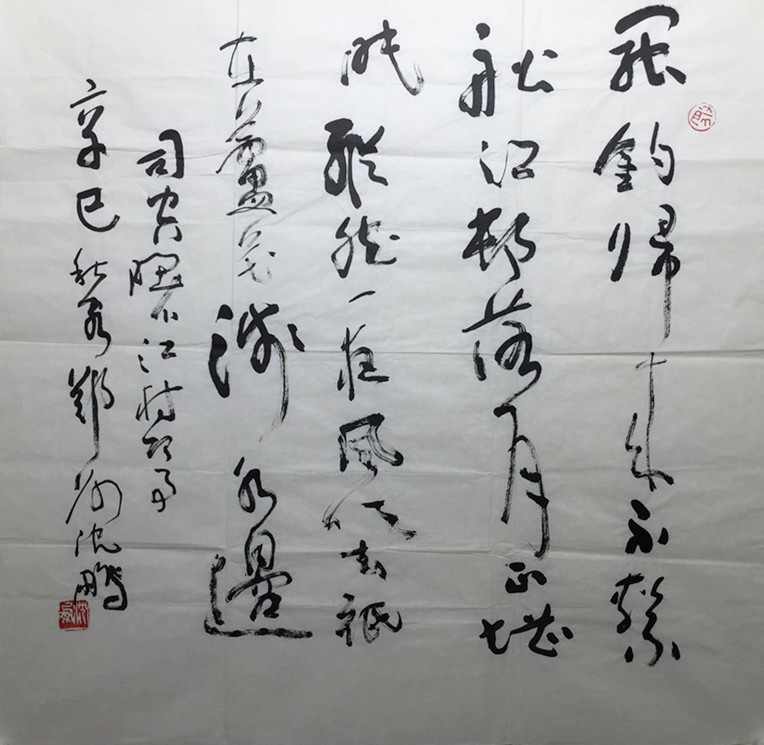 罷釣帰来不繫
船江村落月正堪
眠縱然一夜風吹去祇
在蘆花淺水邊
司空曙江村即事
辛巳秋鄭州沈鵬